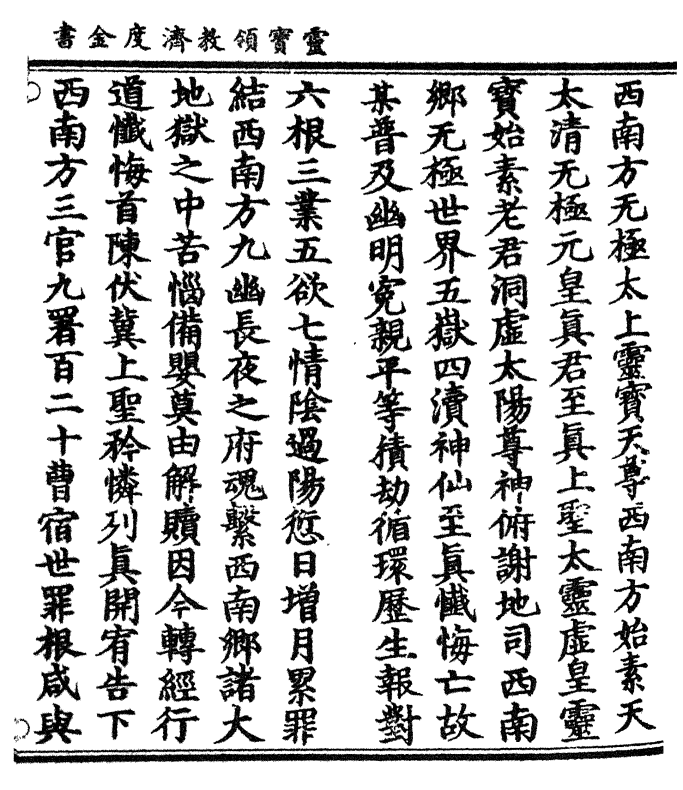 靈寶領教濟度金書
西南方无極太上靈寶天尊西南方始素天
太清无極元皇眞君至眞上聖太靈虛皇靈
寶始素老君洞虛太陽尊神俯謝地司西南
鄉无極世界五嶽四瀆神仙至眞懺悔亡故
某普及幽明寃親平等積劫循環歷生報對
六根三業五欲七情陰過陽愆日增月累罪
結西南方九幽長夜之府魂繫西南鄉諸大
地獄之中苦惱備嬰莫由解贖因今轉經行
道懺悔首陳伏冀上聖矜憐列眞開宥告下
西南方三官九署百二十曹宿世罪根咸與